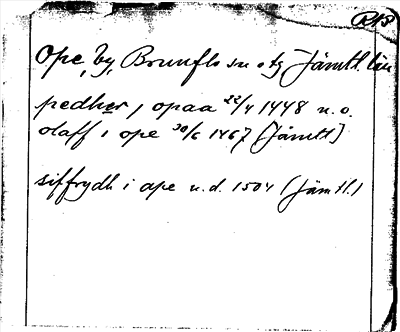 Ope, by, Brunflo sn o tg Jämtl. län
pedher i opaa 22/4 1448 u.o.
olaff i ope 30/6 1467 [Jämtl]
siffrydh i ope u.d. 1504 (Jämtl.)